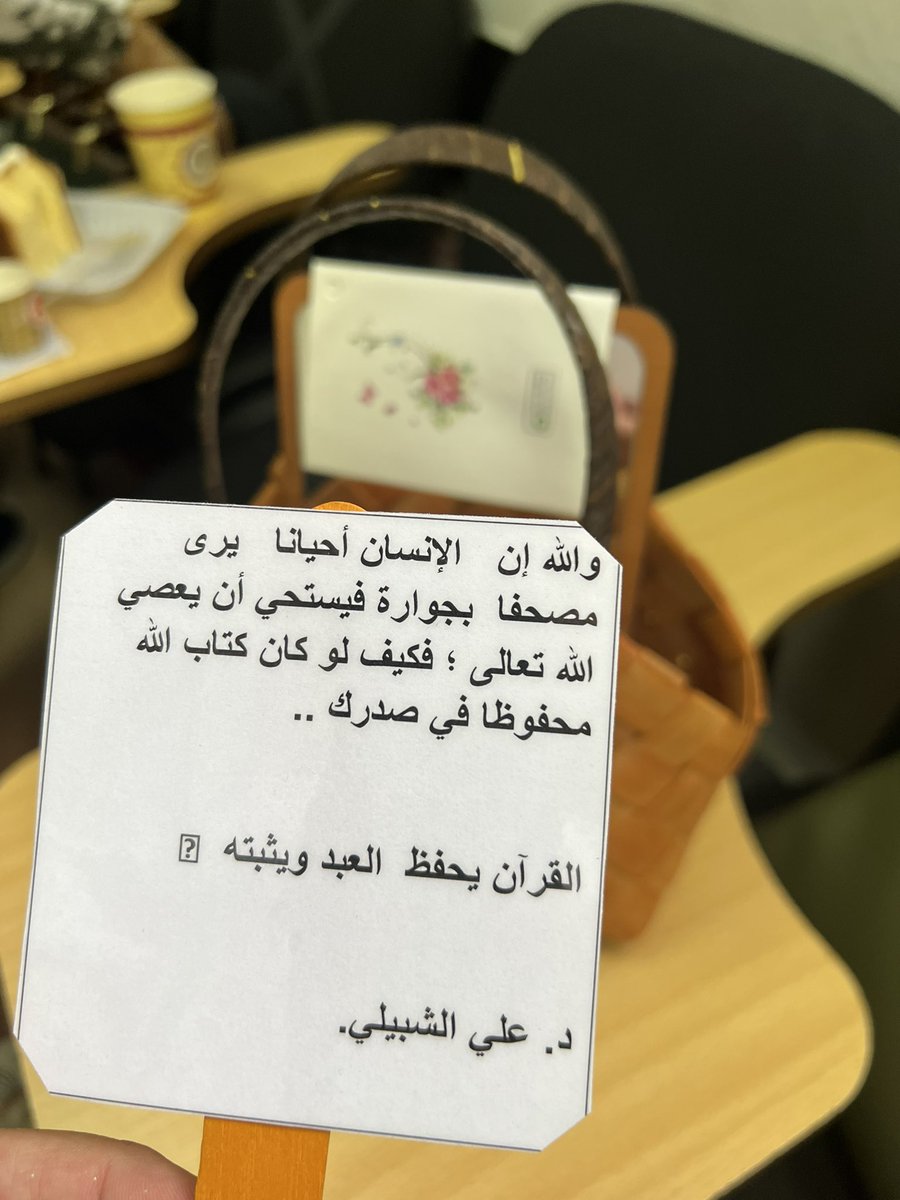 والله إن الإنسان أحيانا يرى
مصحفا بجوارة فيستحي أن يعصي
الله تعالى ؛ فكيف لو كان كتاب الله
محفوظا في صدرك ..
القرآن يحفظ العبد ويثبته
د. علي الشبيلي.